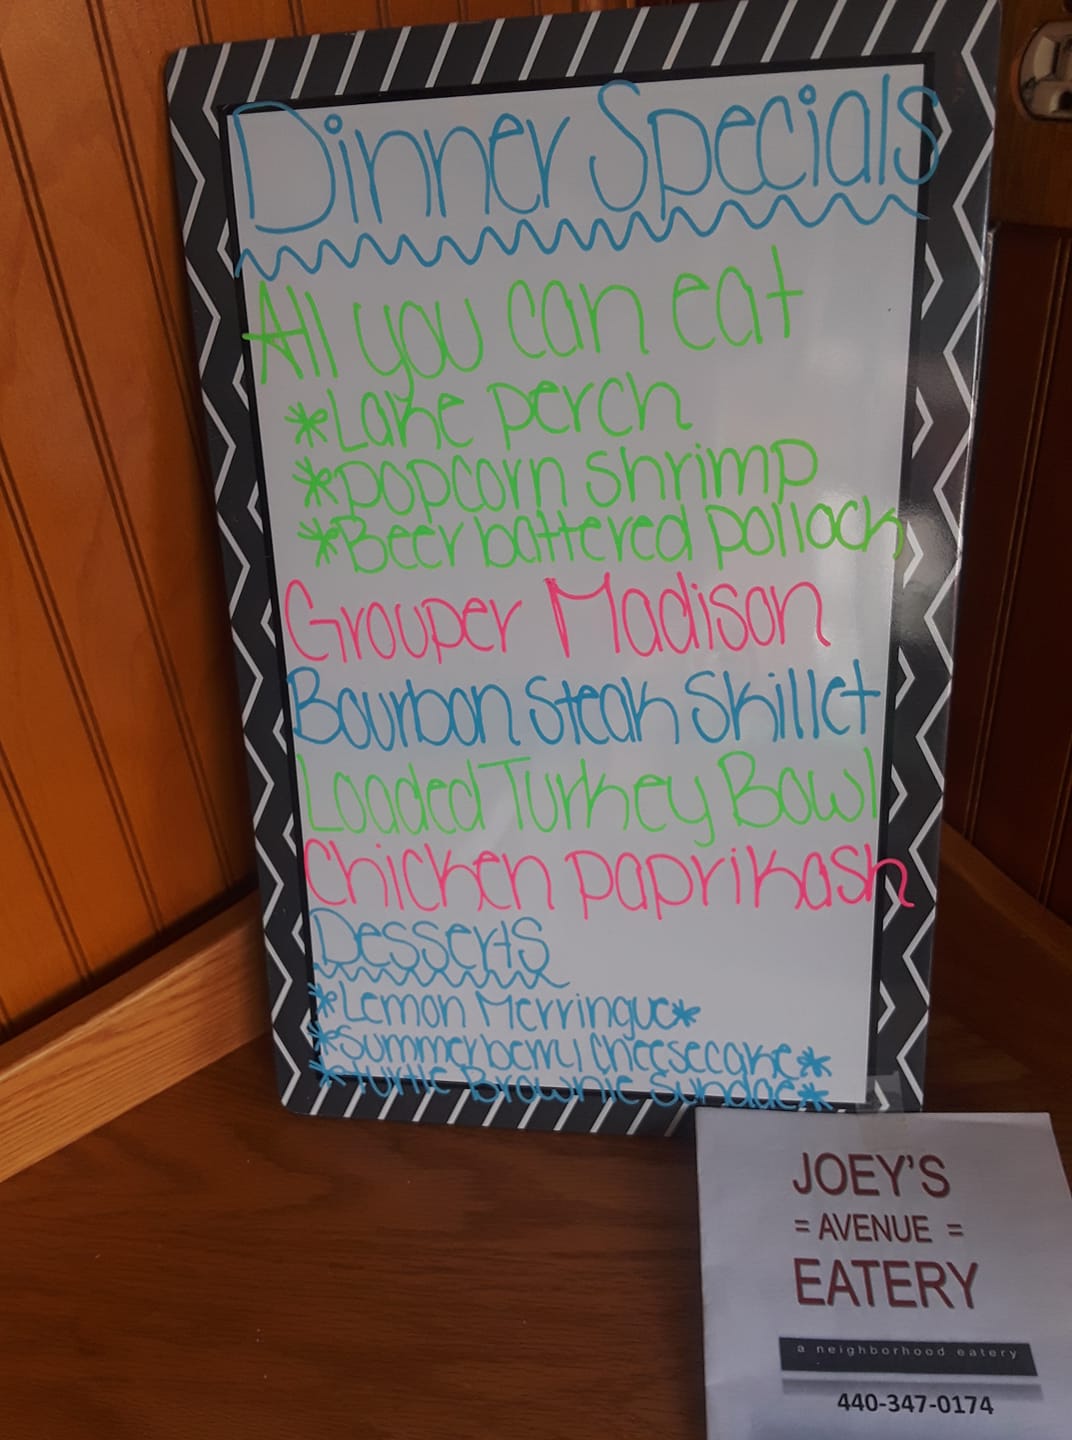 Dinner Specials
All you can eat
*Lake perch
*popcorn shrimp
*Beer battered pollack
Grouper Madison
Bourbon Steak Skillet
Loaded Turkey Bowl
Chicken paprikash
Desserts
*Lemon Merringue*
*Summerberry cheesecake*
*Turtle Brownie Sundae*
JOEY'S
= AVENUE =
EATERY
a neighborhood eatery
440-347-0174